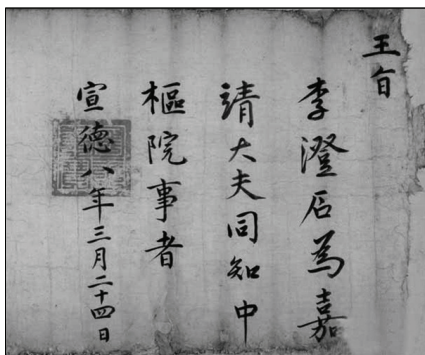 王旨
李澄石爲嘉
靖大夫同知中
樞院事者
宣德八年三月二十四日